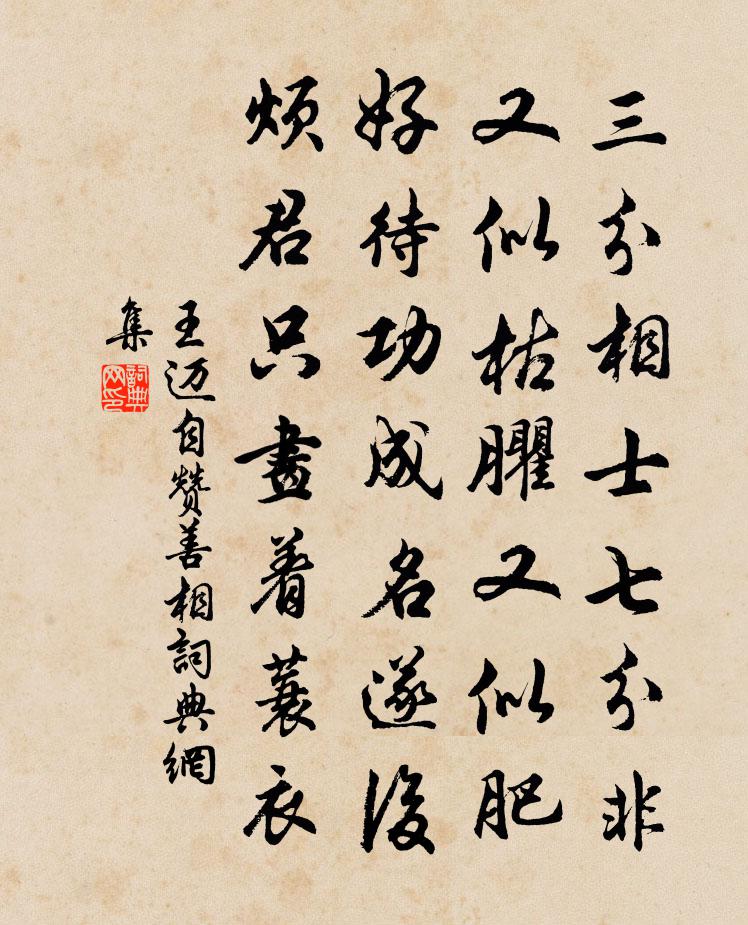 三分相士七分非
又似枯臞又似肥
好待功成名遂後
煩君只畫着蓑衣
王迈自赞善相詞典網
集
詞典网印